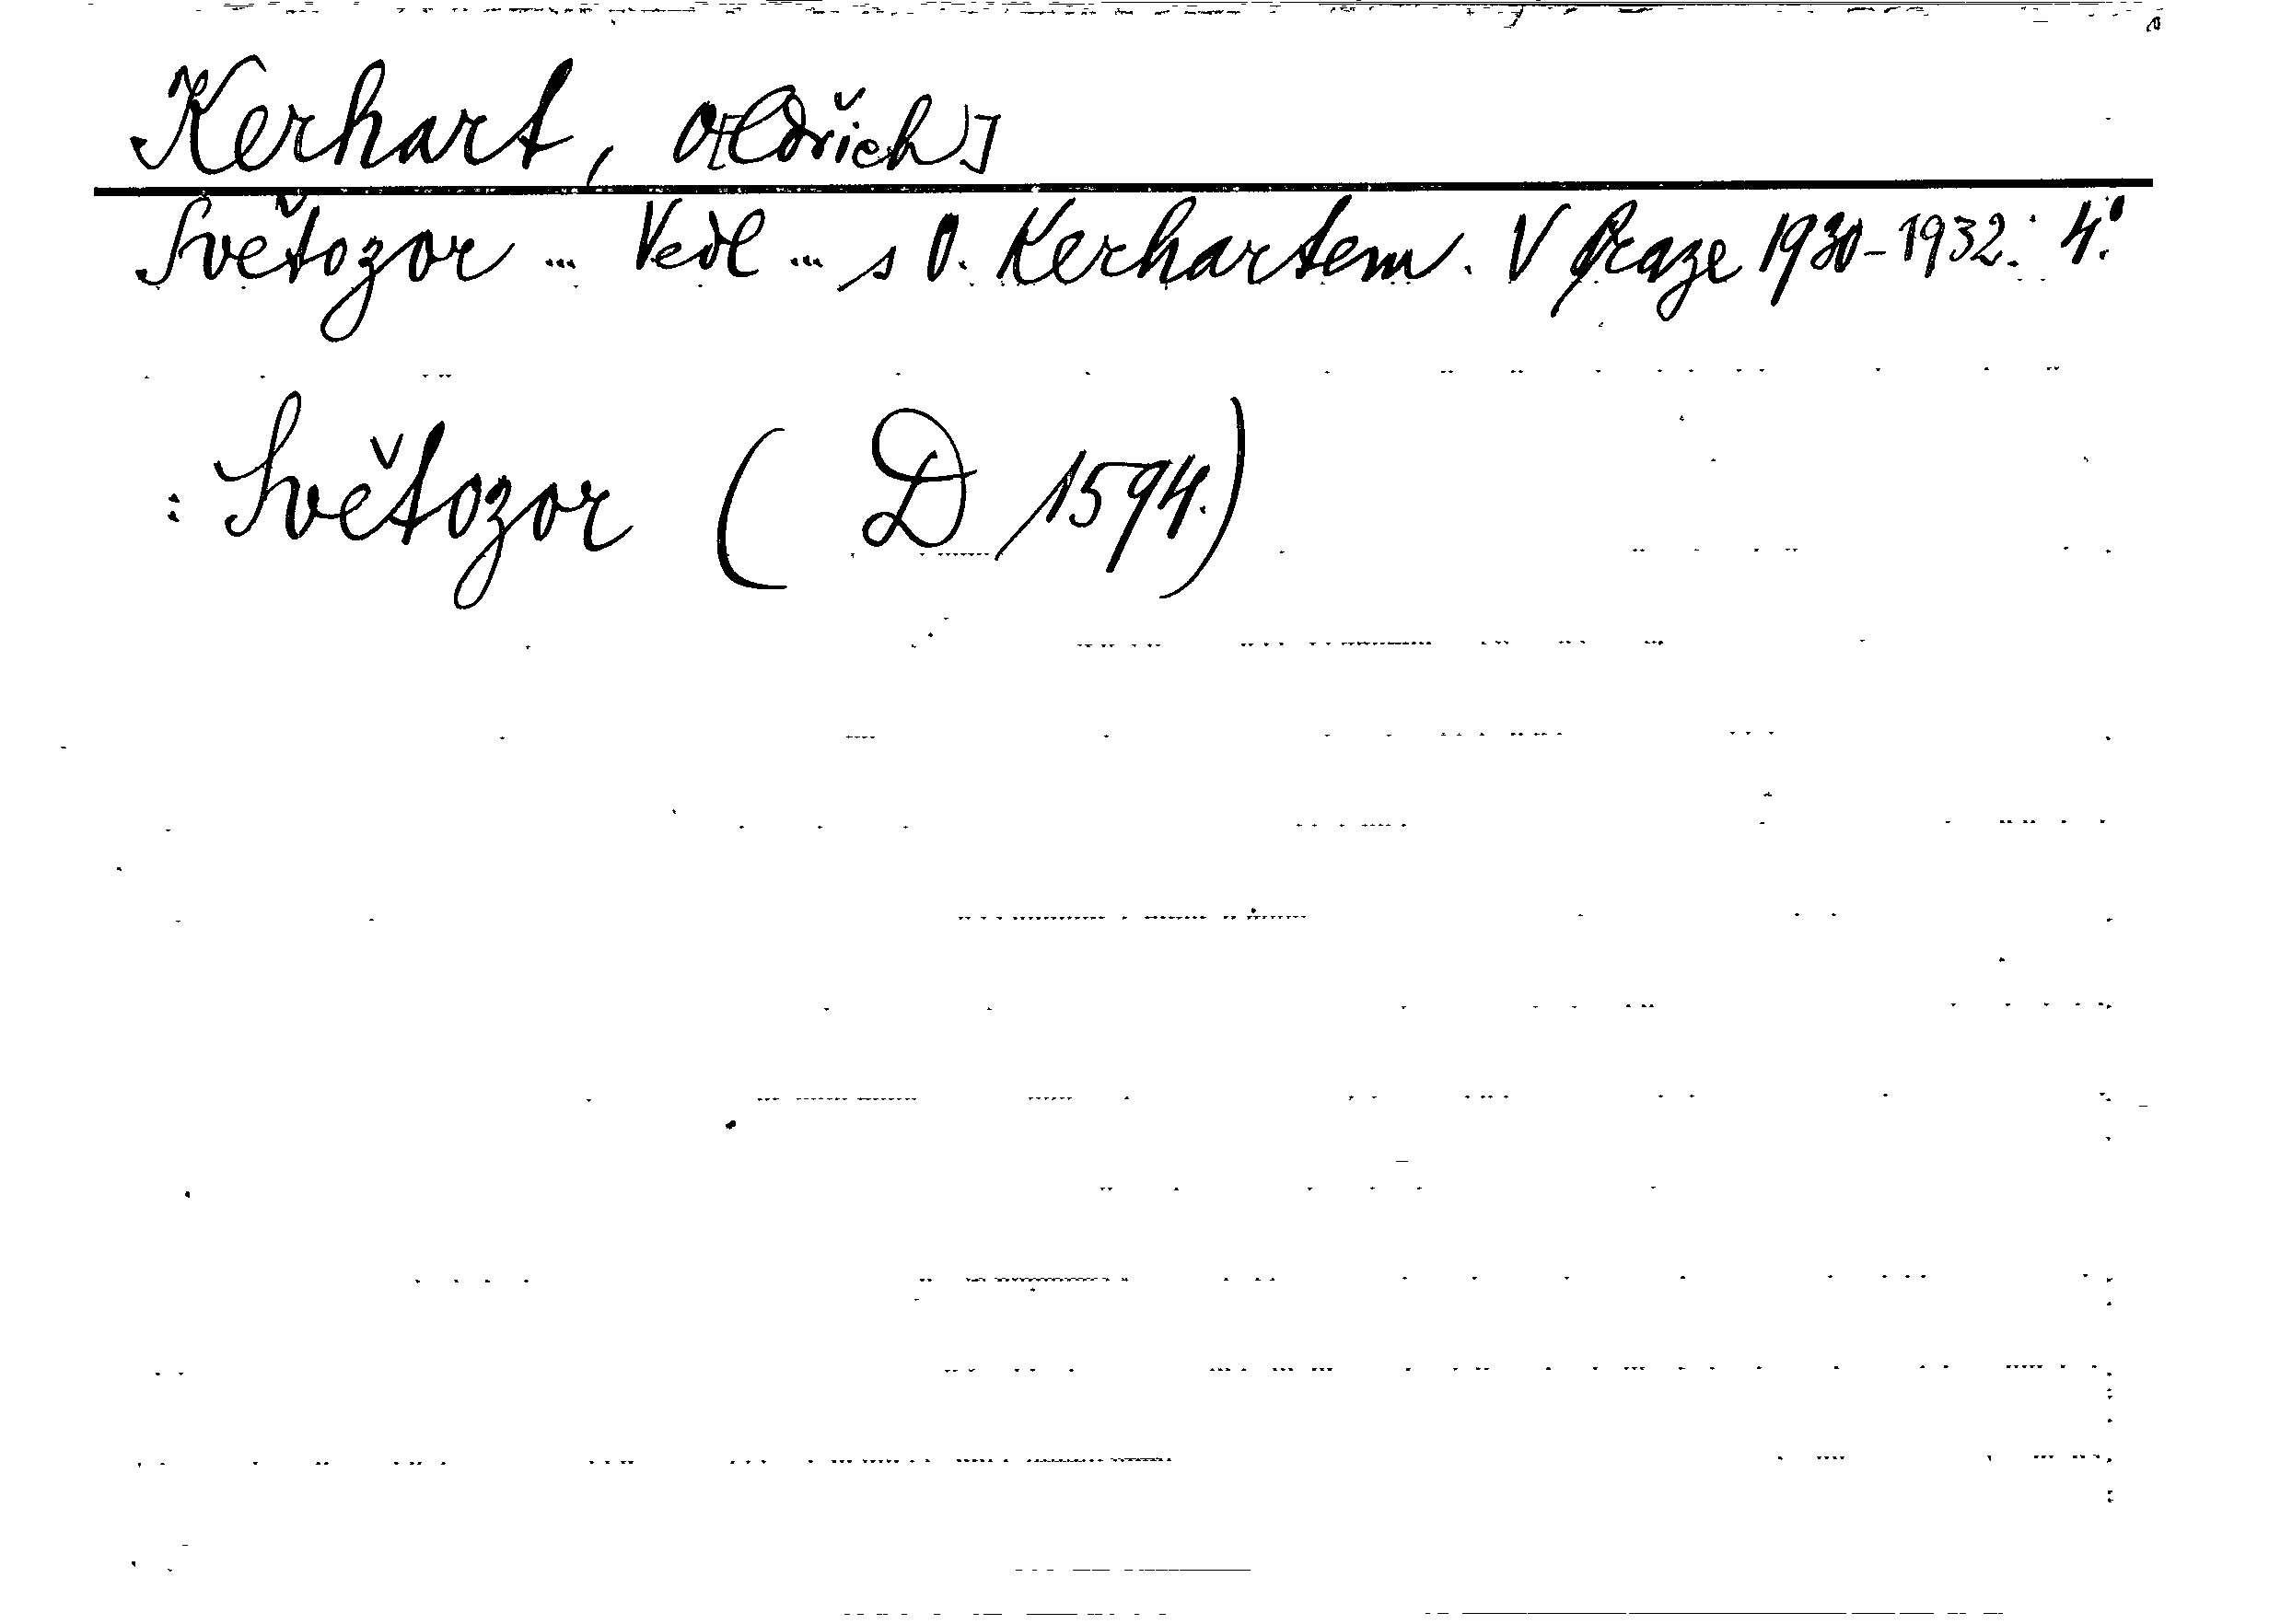 Kerhart, O[ldřich]
Světozor ... Vedl ... s O. Kerhartem. V Praze 1930-1932. 4°.
: Světozor ( D 1594.)